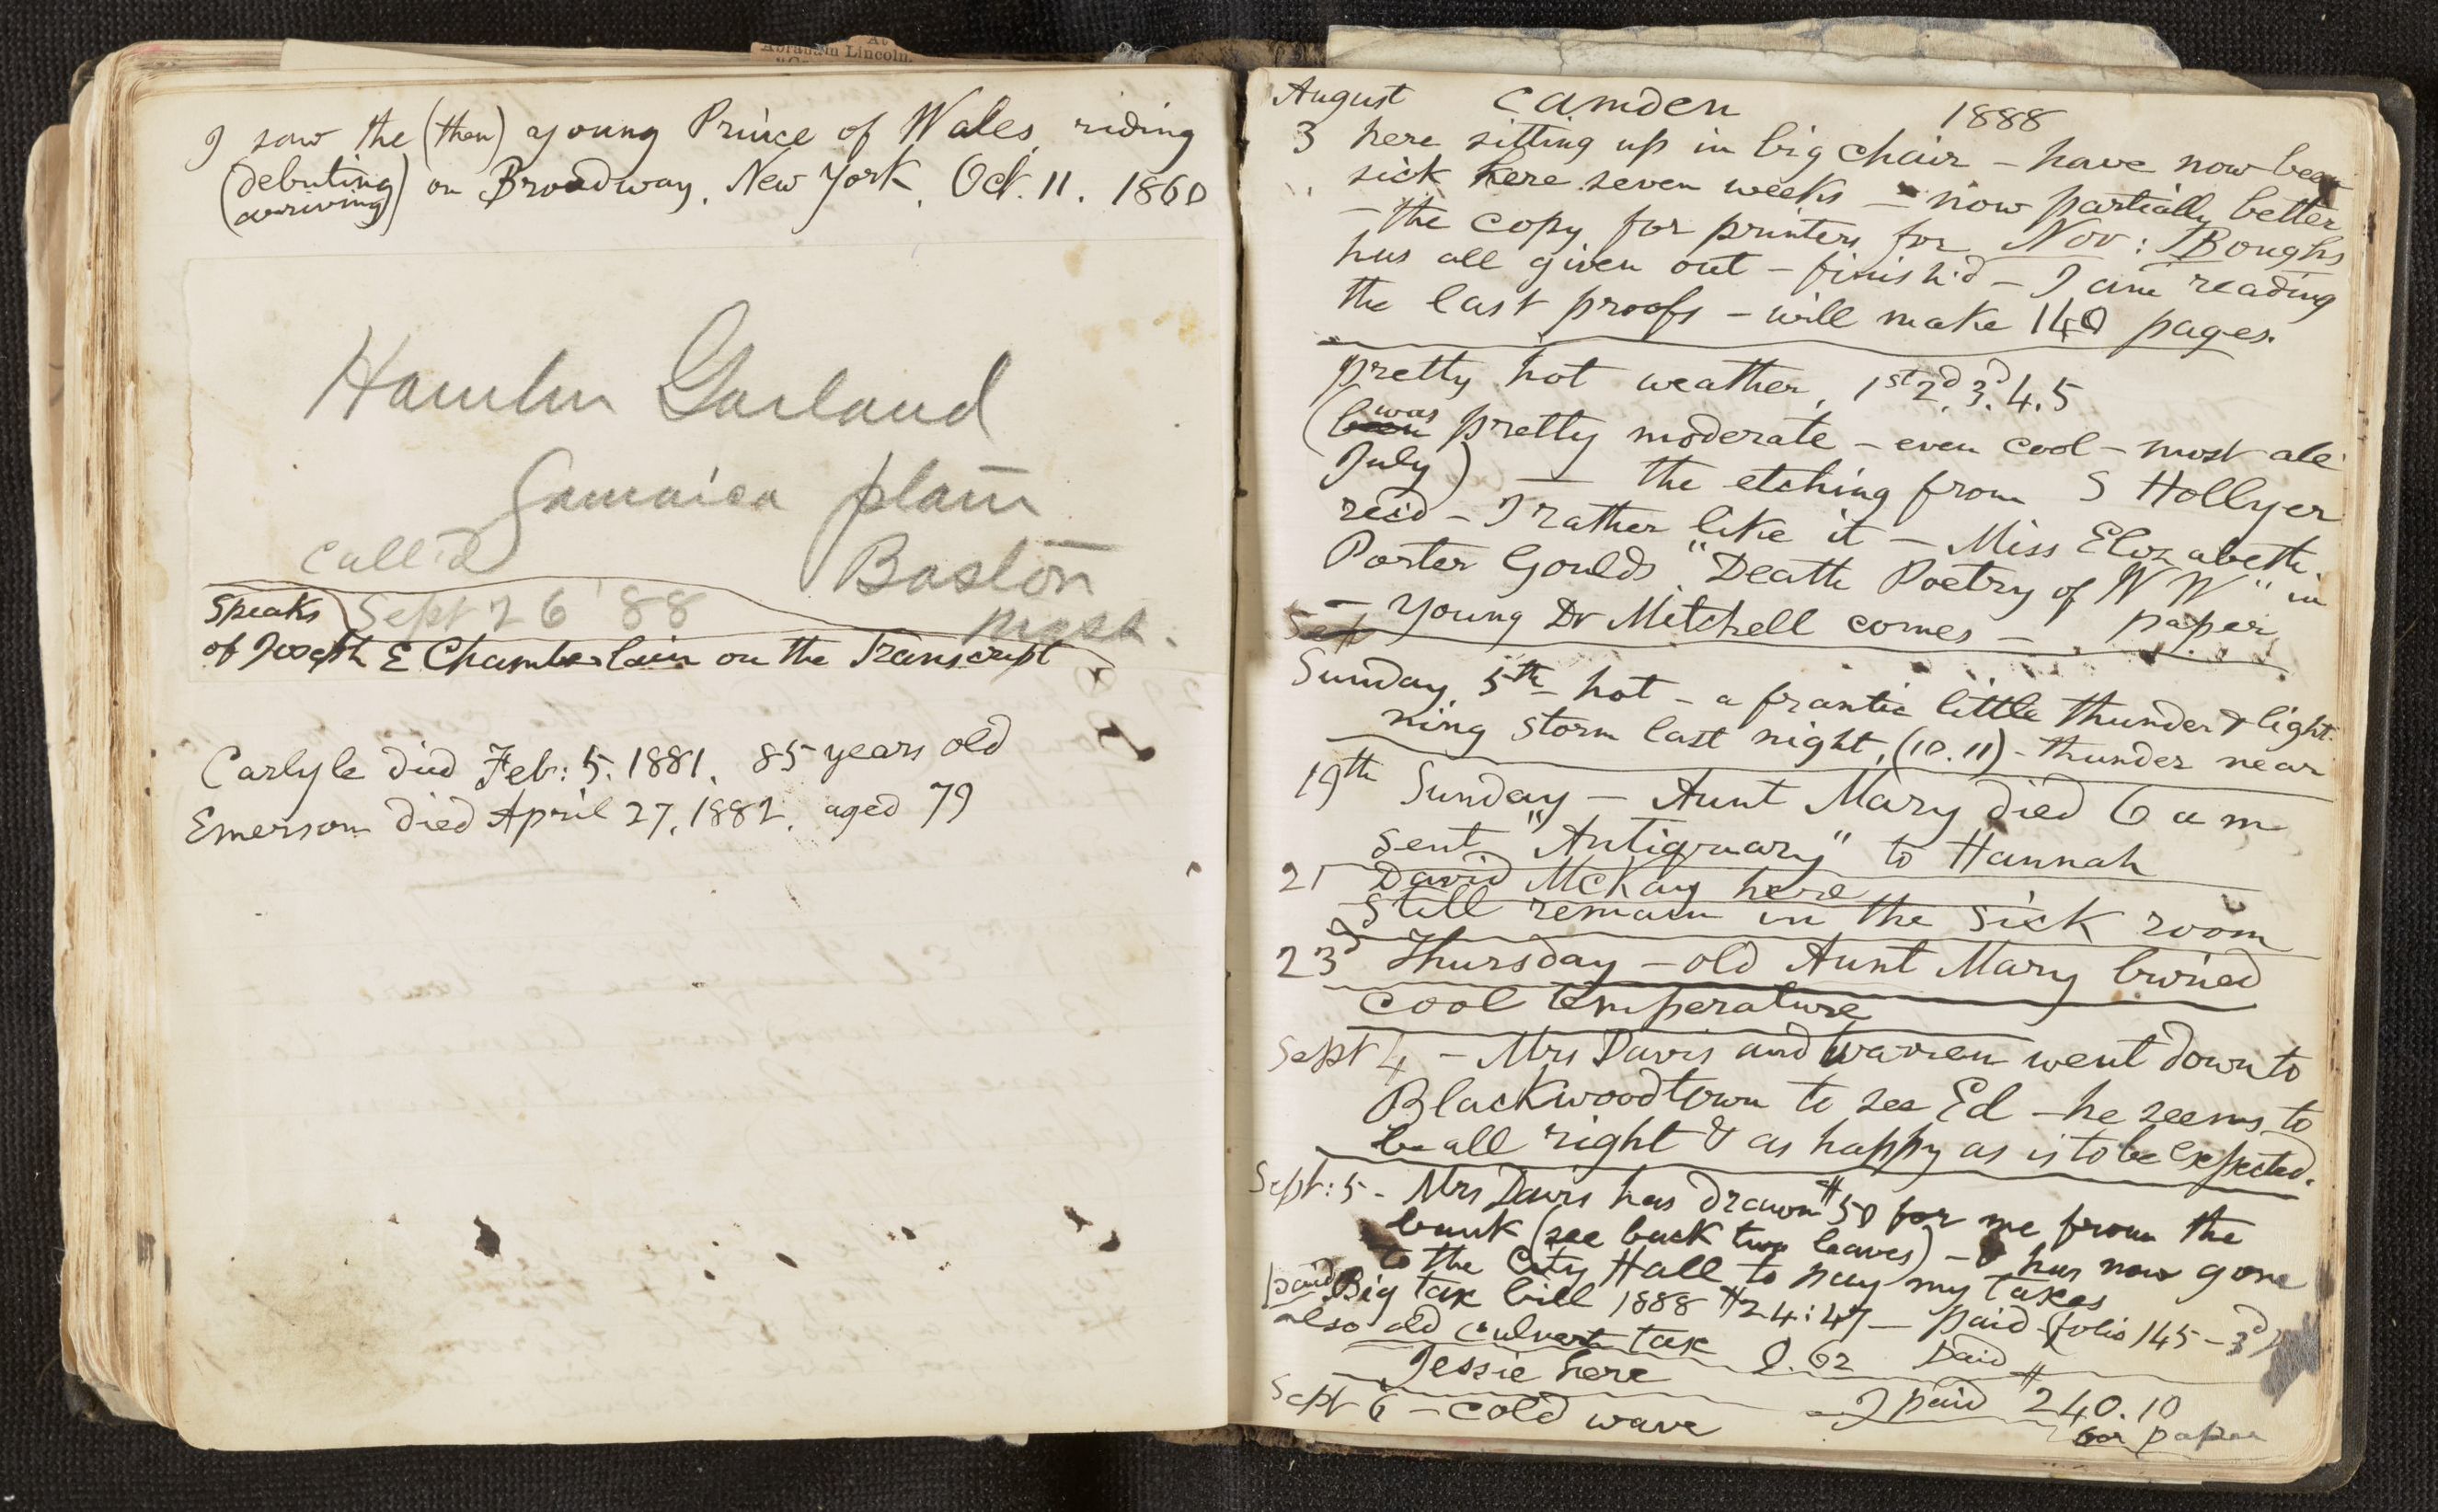 At
Abraham Lincoln,
I saw the (then) young Prince of Wales, riding
(debuting
arriving) on Broadway, New York, Oct. 11. 1860
Hamlin Garland
Jamaica plain
call'd Boston
Sept 26 '88 Mass.
speaks
of Joseph E Chamberlain on the Transcript
Carlyle died Feb: 5. 1881. 85 years old
Emerson died April 27, 1882. aged 79
August Camden 1888
3 here sitting up in big chair – have now been
sick here seven weeks – now partially better
– the copy for printers for Nov: Boughs
has all given out – finish'd – I am reading
the last proofs – will make 140 pages.
pretty hot weather, 1st 2d, 3d, 4, 5
(been was pretty moderate – even cool – most all
July) — the etching from S Hollyer
rec'd – I rather like it – Miss Elizabeth
Porter Goulds "Death Poetry of W W" in
paper
Sept – young Dr Mitchell comes –
Sunday 5th – hot – a frantic little thunder & light-
ning storm last night, (10.11) – thunder near
19th Sunday – Aunt Mary died 6 a m
sent "Antiquary" to Hannah
21 David McKay here
still remain in the sick room
23d Thursday – old Aunt Mary buried
cool temperature
Sept 4 – Mrs Davis and Warren went down to
Blackwoodtown to see Ed – he seems to
be all right & as happy as is to be expected.
Sept: 5 – Mrs Davis has drawn $50 for me from the
bank (see back two leaves) – & has now gone
to the City Hall to pay my taxes
paid Big tax bill 1888 $24:47 – paid (folio 145 – 3d)
also old culvert tax 0.62 paid
Jessie here
Sept 6 – cold wave – I paid $240.10
for paper